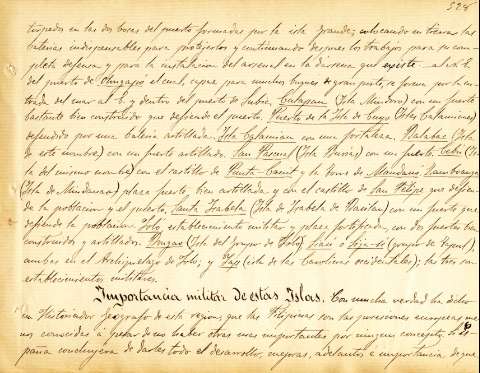 528
torpedos en las dos bocas del puerto formadas por la isla grande; colocando en tierra las
baterias indispensables para protejerlos y continuando despues los trabajos para su com-
pleta defensa y para la instalacion del arsenal en la darsena que existe al
del puerto de Olongapó el cual, capaz para muchos buques de gran porte, se forma por la en-
trada del mar al E. y dentro del puerto de Subic, Calapan (Isla Mindoro) con un fuerte
bastante bien construido que defiende el puerto. Puerto de la Isla de Cuyo (Islas Calamianes)
defendido por una bateria artillada. Isla Calamian con una fortaleza. Balabac (Isla
de este nombre) con un fuerte artillado. San Pascual (Isla Burias) con un fuerte. Cebú (Is-
la del mismo nombre) con el castillo de y la torre de Mandano. Zamboanga
(Isla de Mindanao) plaza fuerte, bien artillada y con el castillo de San Felipe que defien-
de la poblacion y el puerto. Santa Isabela (Isla de Isabela de Basilan) con un fuerte que
defiende la poblacion. Joló, establecimiento militar y plaza fortificada, con dos fuertes bien
construidos y artillados. Bongao (Isla del grupo de Joló) Siasi ó (grupo de Tapul),
ambas en el Archipielago de Joló; y Yap (isla de las Carolinas occidentales); las tres son
establecimientos militares.
Importancia militar de estas Islas. Con mucha verdad ha dicho
un Historiador Geógrafo de esta region, que las Filipinas son las posesiones europeas me-
nos conocidas á pesar de no haber otras mas importantes por ningun concepto. Si Es-
paña concluyera de darles todo el desarrollo, mejoras, adelantos e importancia de que